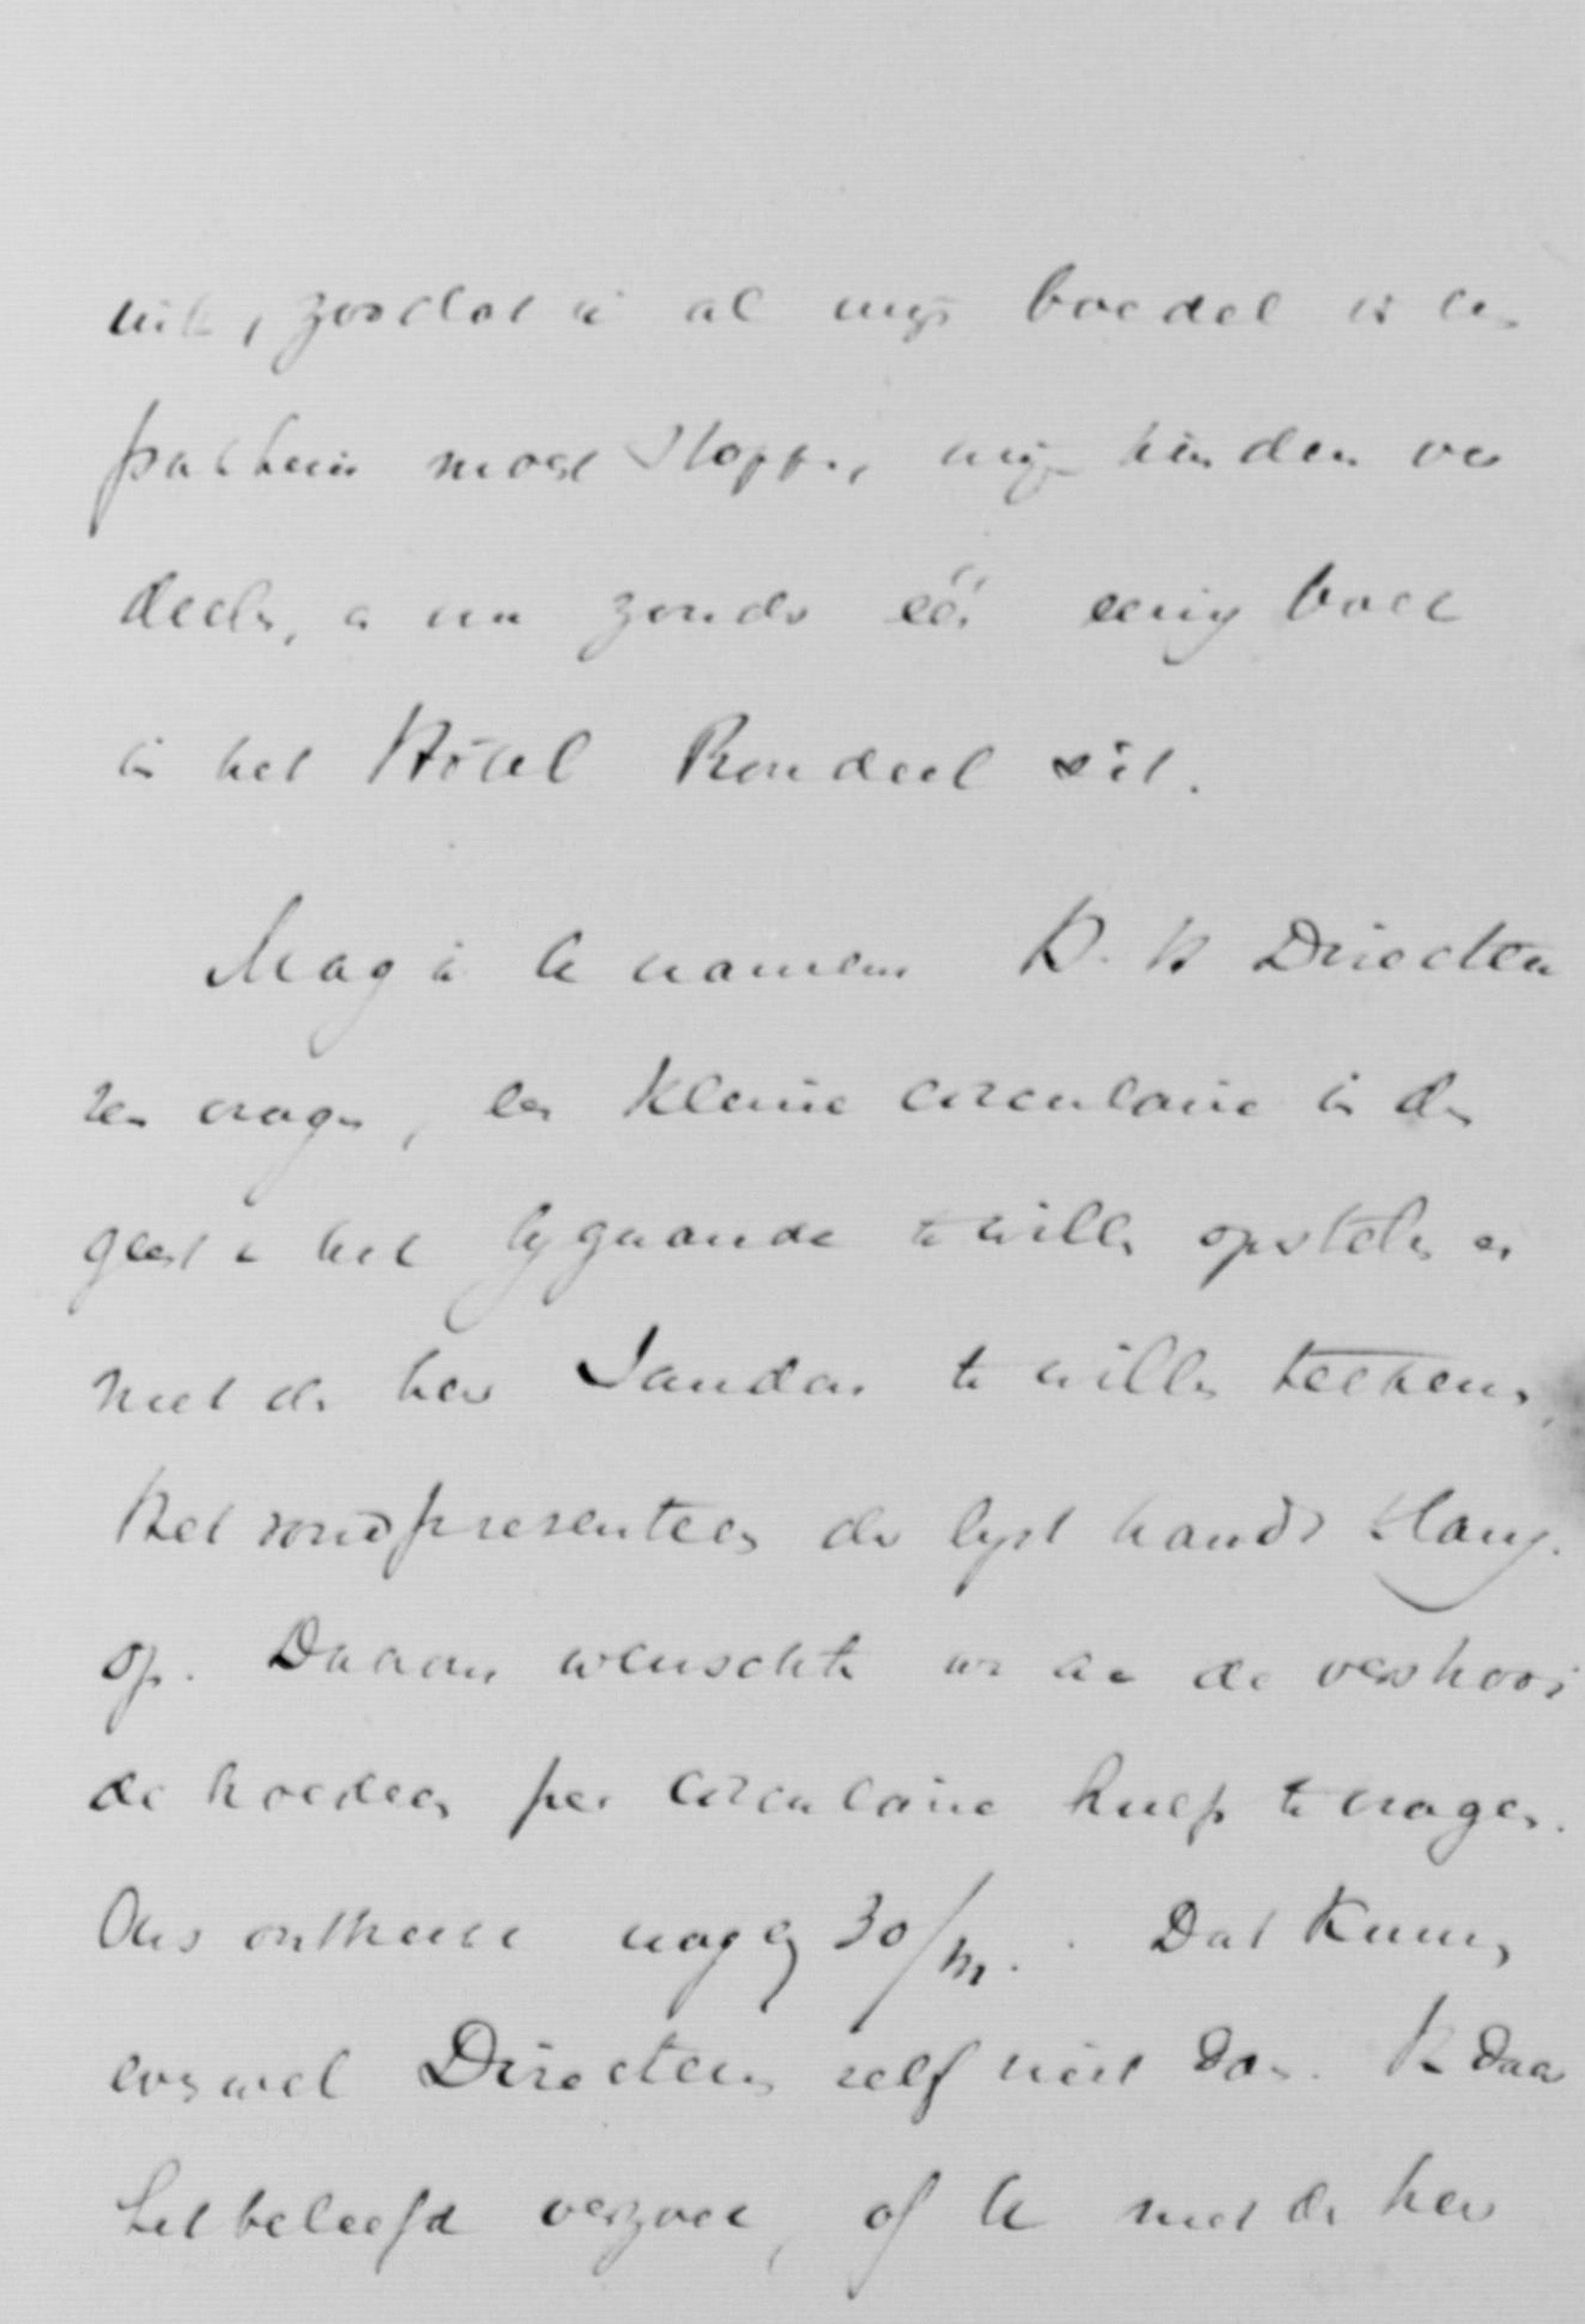 uit, zoodat ik al mijn boedel in een
pakhuis moest stoppen, mijn kinderen ver
deelen, en nu zonder één eenig boek
in het Hôtel Rondeel zit.
Mag ik U namens H.H. Directeu
ren vragen, een kleine circulaire in den
geest van het bijgaande te willen opstellen en
met den heer Sandar te willen teekenen,
Het rondpresenteeren der lijst
op. Daarom wenschten we aan de
de hoeden per circulaire hulp te vragen.
Ons ontbreekt nog 30/m. Dat kunnen
evenwel Directeuren zelf niet doen. Van daar
het beleefd verzoek, of U met den heer